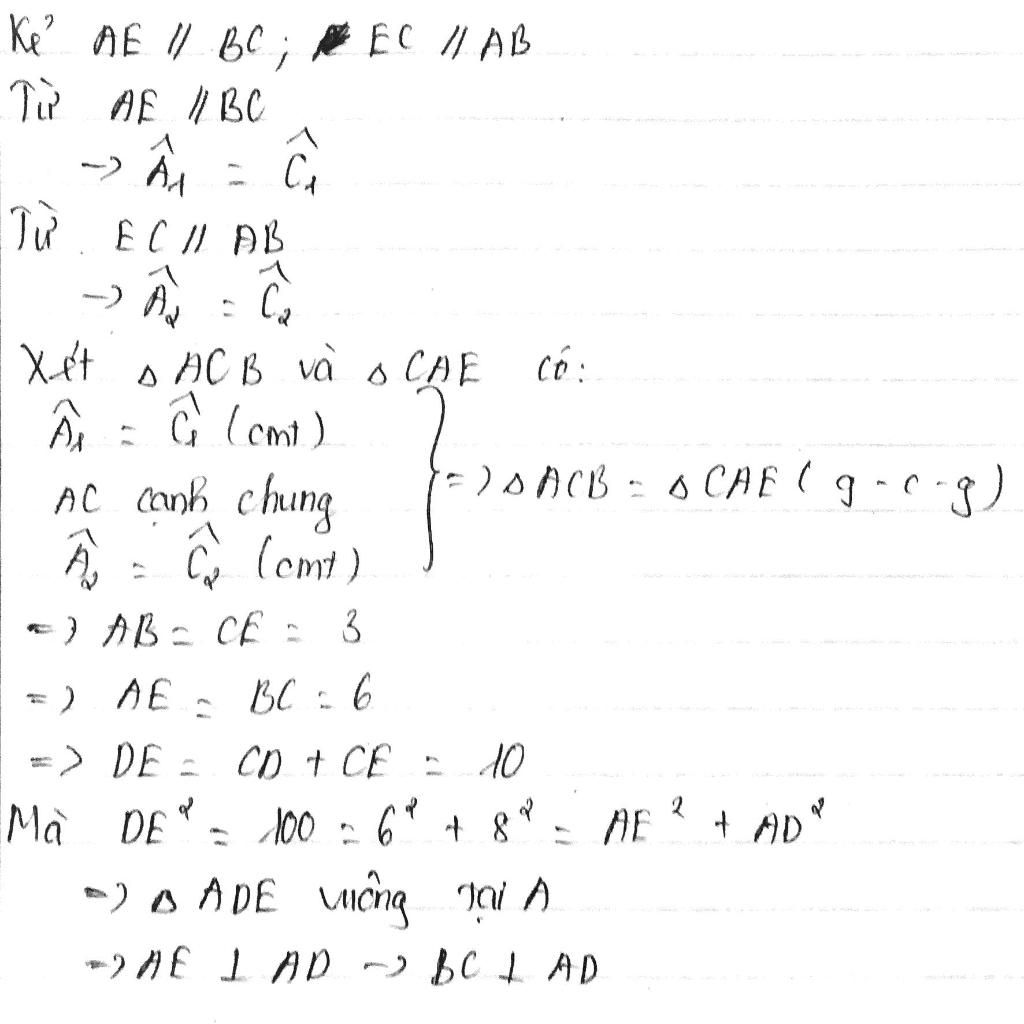 Kẻ AE // BC; EC // AB
Từ AE // BC
-> Â₁ = Ĉ₁
Từ EC // AB
-> Â₂ = Ĉ₂
Xét Δ ACB và Δ CAE có:
Â₁ = Ĉ₁ (cmt)
AC cạnh chung => Δ ACB = Δ CAE (g-c-g)
Â₂ = Ĉ₂ (cmt)
=> AB = CE = 3
=> AE = BC = 6
=> DE = CD + CE = 10
Mà DE² = 100 = 6² + 8² = AE² + AD²
=> Δ ADE vuông tại A
=> AE ⊥ AD -> BC ⊥ AD